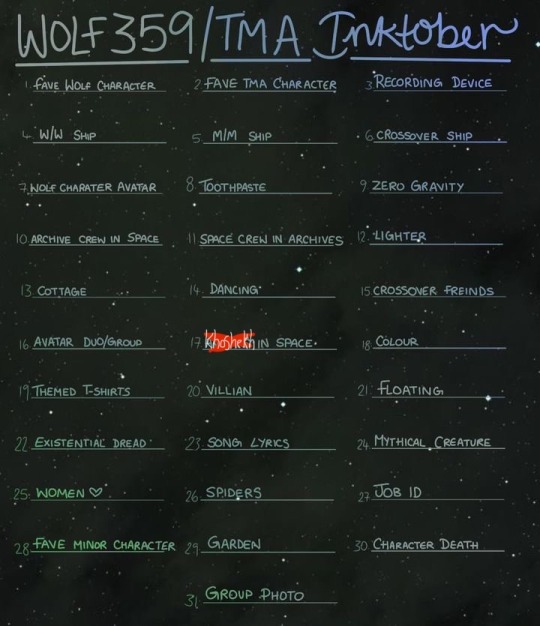 WOLF359/TMA Inktober
1. FAVE WOLF CHARACTER
2 FAVE TMA CHARACTER
3. RECORDING DEVICE
4. W/W SHIP
5. M/M SHIP
6. CROSSOVER SHIP
7. WOLF CHARATER AVATAR
8. TOOTHPASTE
9 ZERO GRAVITY
10. ARCHIVE CREW IN SPACE
11 SPACE CREW IN ARCHIVES
12. LIGHTER
13. COTTAGE
14. DANCING
15 CROSSOVER FREINDS
16. AVATAR DUO/GROUP
17. Khoshekh IN SPACE
18 COLOUR
19 THEMED T-SHIRTS
20. VILLIAN
21. FLOATING
22. EXISTENTIAL DREAD
23. SONG LYRICS
24. MYTHICAL CREATURE
25. WOMEN ♡
26. SPIDERS
27. JOB ID
28 FAVE MINOR CHARACTER
29. GARDEN
30. CHARACTER DEATH
31. GROUP PHOTO